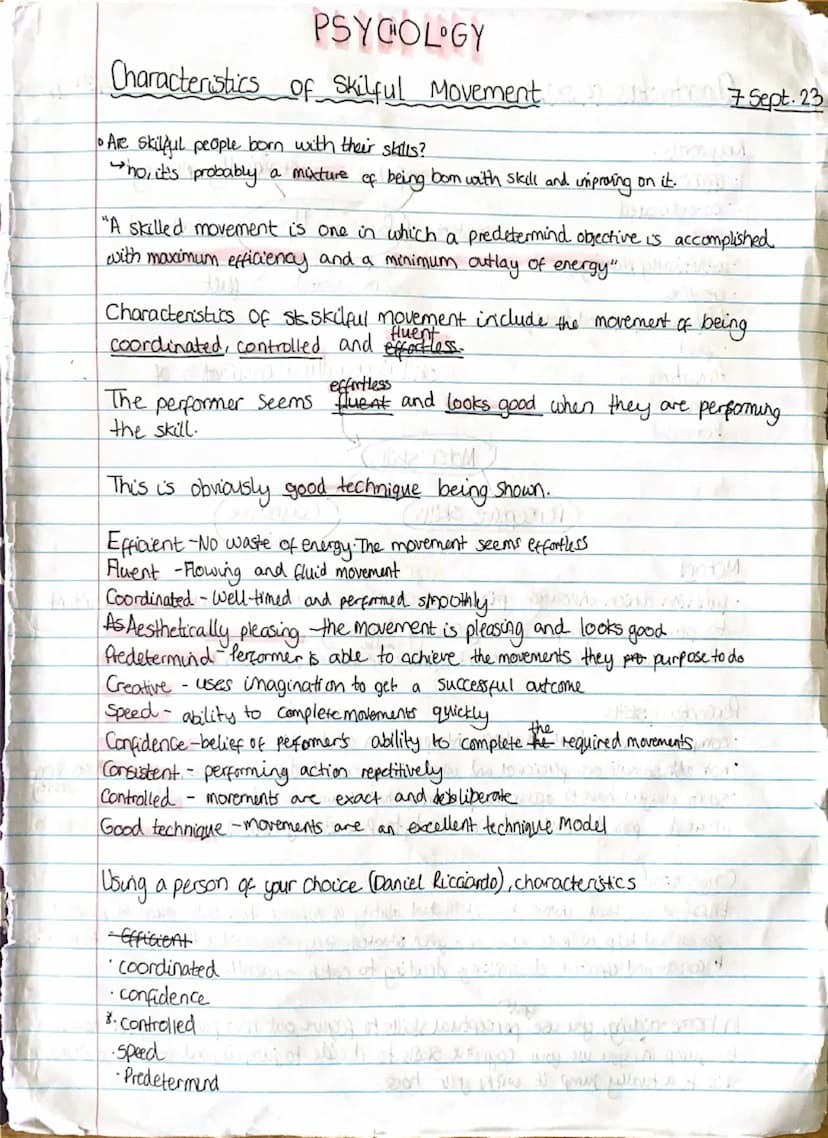 PSYCHOLOGY
Characteristics of Skilful Movement
7 Sept. 23
Are skilful people born with their skills?
↳ no, it's probably a mixture of being born with skill and improving on it.
"A skilled movement is one in which a predetermind objective is accomplished
with maximum efficiency and a minimum outlay of energy"
Characteristics of sk skilful movement include the movement of being
fluent
coordinated, controlled and effortless.
effortless
The performer seems fluent and looks good when they are performing
the skill.
This is obviously good technique being shown.
Efficient - No waste of energy. The movement seems effortless
Fluent - Flowing and fluid movement
Coordinated - well-timed and performed smoothly
As Aesthetically pleasing - the movement is pleasing and looks good
Predetermind - Performer is able to achieve the movements they purpose to do
Creative - uses imagination to get a successful outcome
Speed - ability to complete movements quickly
the
Confidence - belief of peformer's ability to complete the required movements
Consistent - performing action repetitively
Controlled - movements are exact and deliberate
Good technique - movements are an excellent technique model
Using a person of your choice (Daniel Ricciardo), characteristics
- Efficient
· coordinated
· confidence
· controlled
· speed
· Predetermind